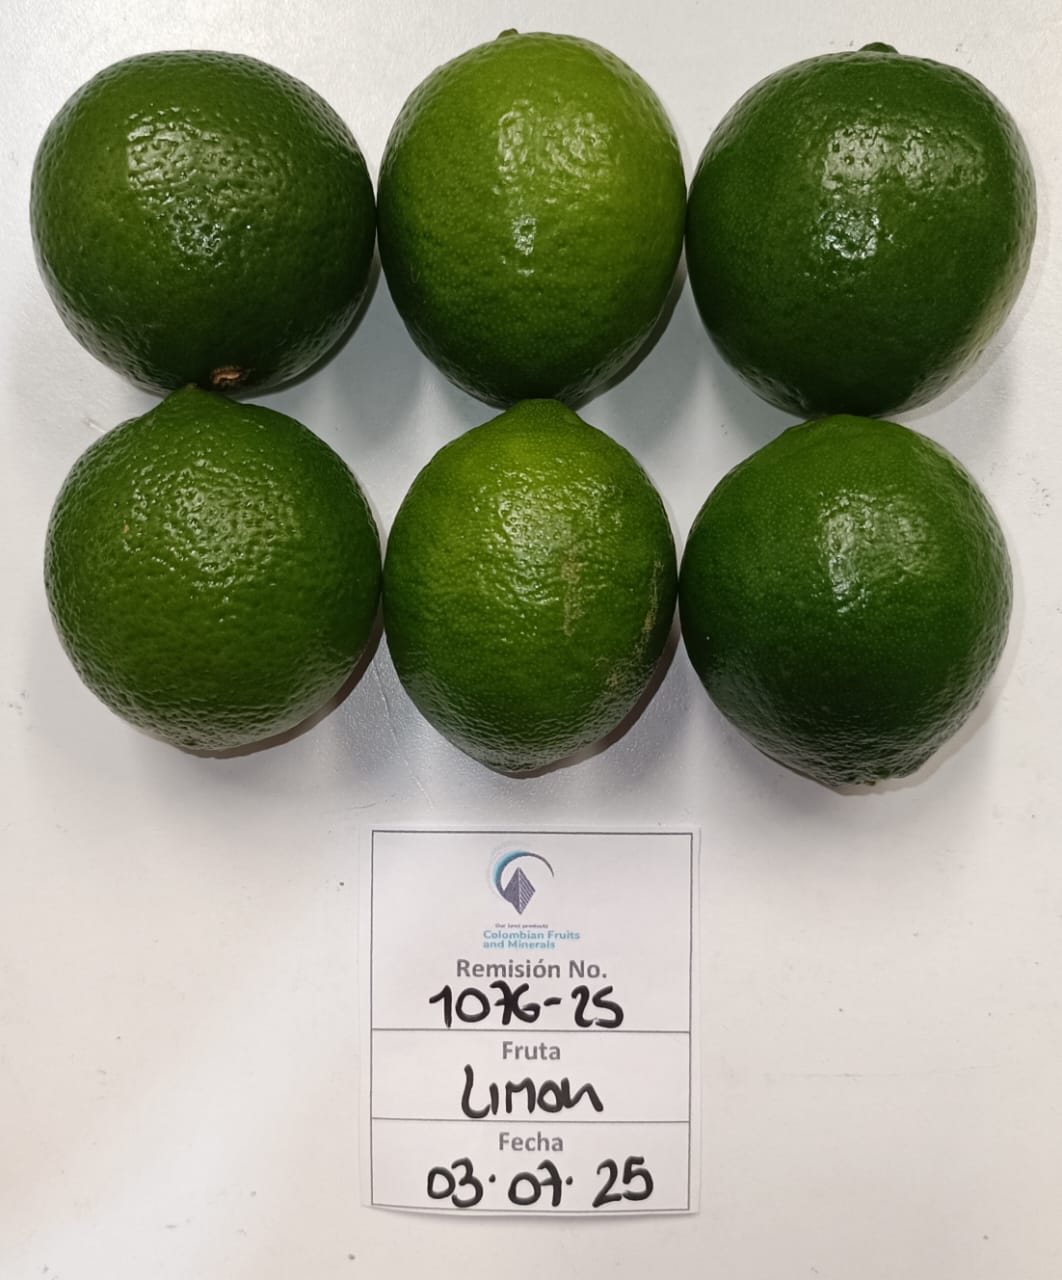 Our land products
Colombian Fruits
and Minerals
Remisión No.
1076-25
Fruta
Limon
Fecha
03·07·25